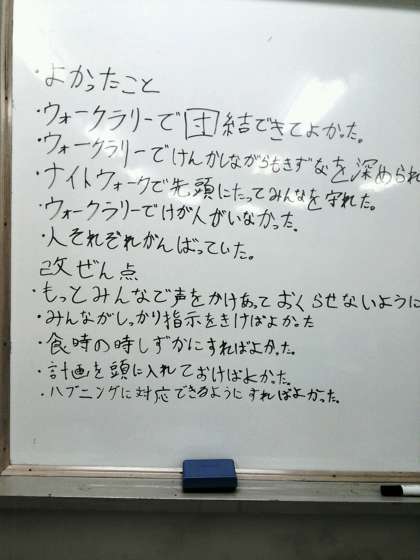 ・よかったこと
・ウォークラリーで団結できてよかった。
・ウォークラリーでけんかしながらもきずなを深められ
・ナイトウォークで先頭にたってみんなを守れた。
・ウォークラリーでけが人がいなかった。
・人それぞれがんばっていた。
改ぜん点
・もっとみんなで声をかけあっておくらせないように
・みんながしっかり指示をきけばよかった
・食時の時しずかにすればよかった。
・計画を頭に入れておけばよかった。
・ハプニングに対応できるようにすればよかった。